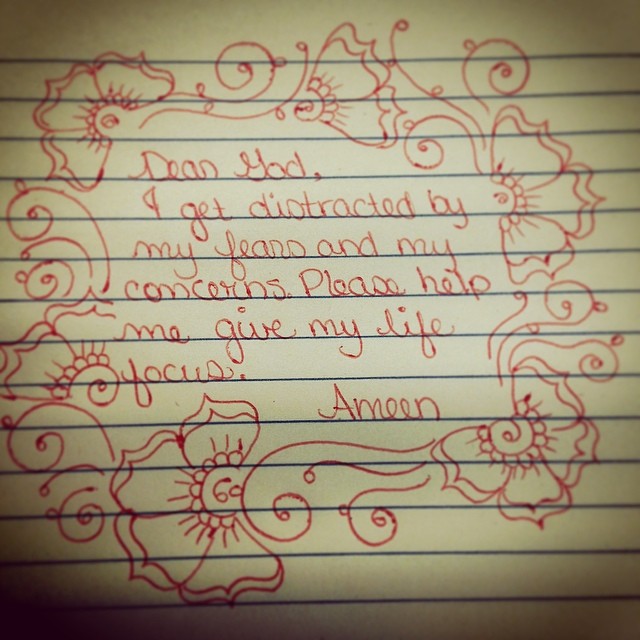 Dear God,
I get distracted by
my fears and my
concerns. Please help
me give my life
focus.
Ameen